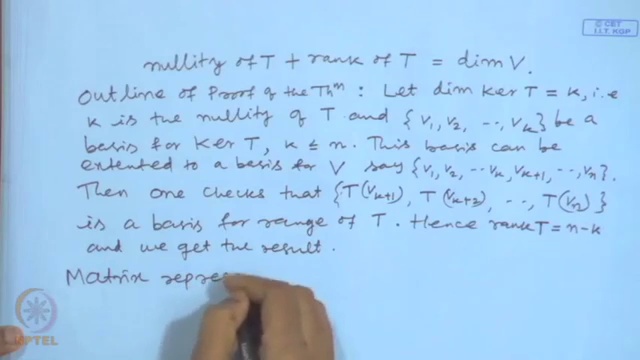 © CET
I.I.T. KGP
nullity of T + rank of T = dim V.
Outline of Proof of the Thm : Let dim Ker T = k, i.e
k is the nullity of T and {v1, v2, ..., vk} be a
basis for Ker T, k ≤ n. This basis can be
extented to a basis for V say {v1, v2, ... vk, vk+1, ..., vn}.
Then one checks that {T(vk+1), T(vk+2), ..., T(vn)}
is a basis for range of T. Hence rank T = n-k
and we get the result.
Matrix repres
NPTEL